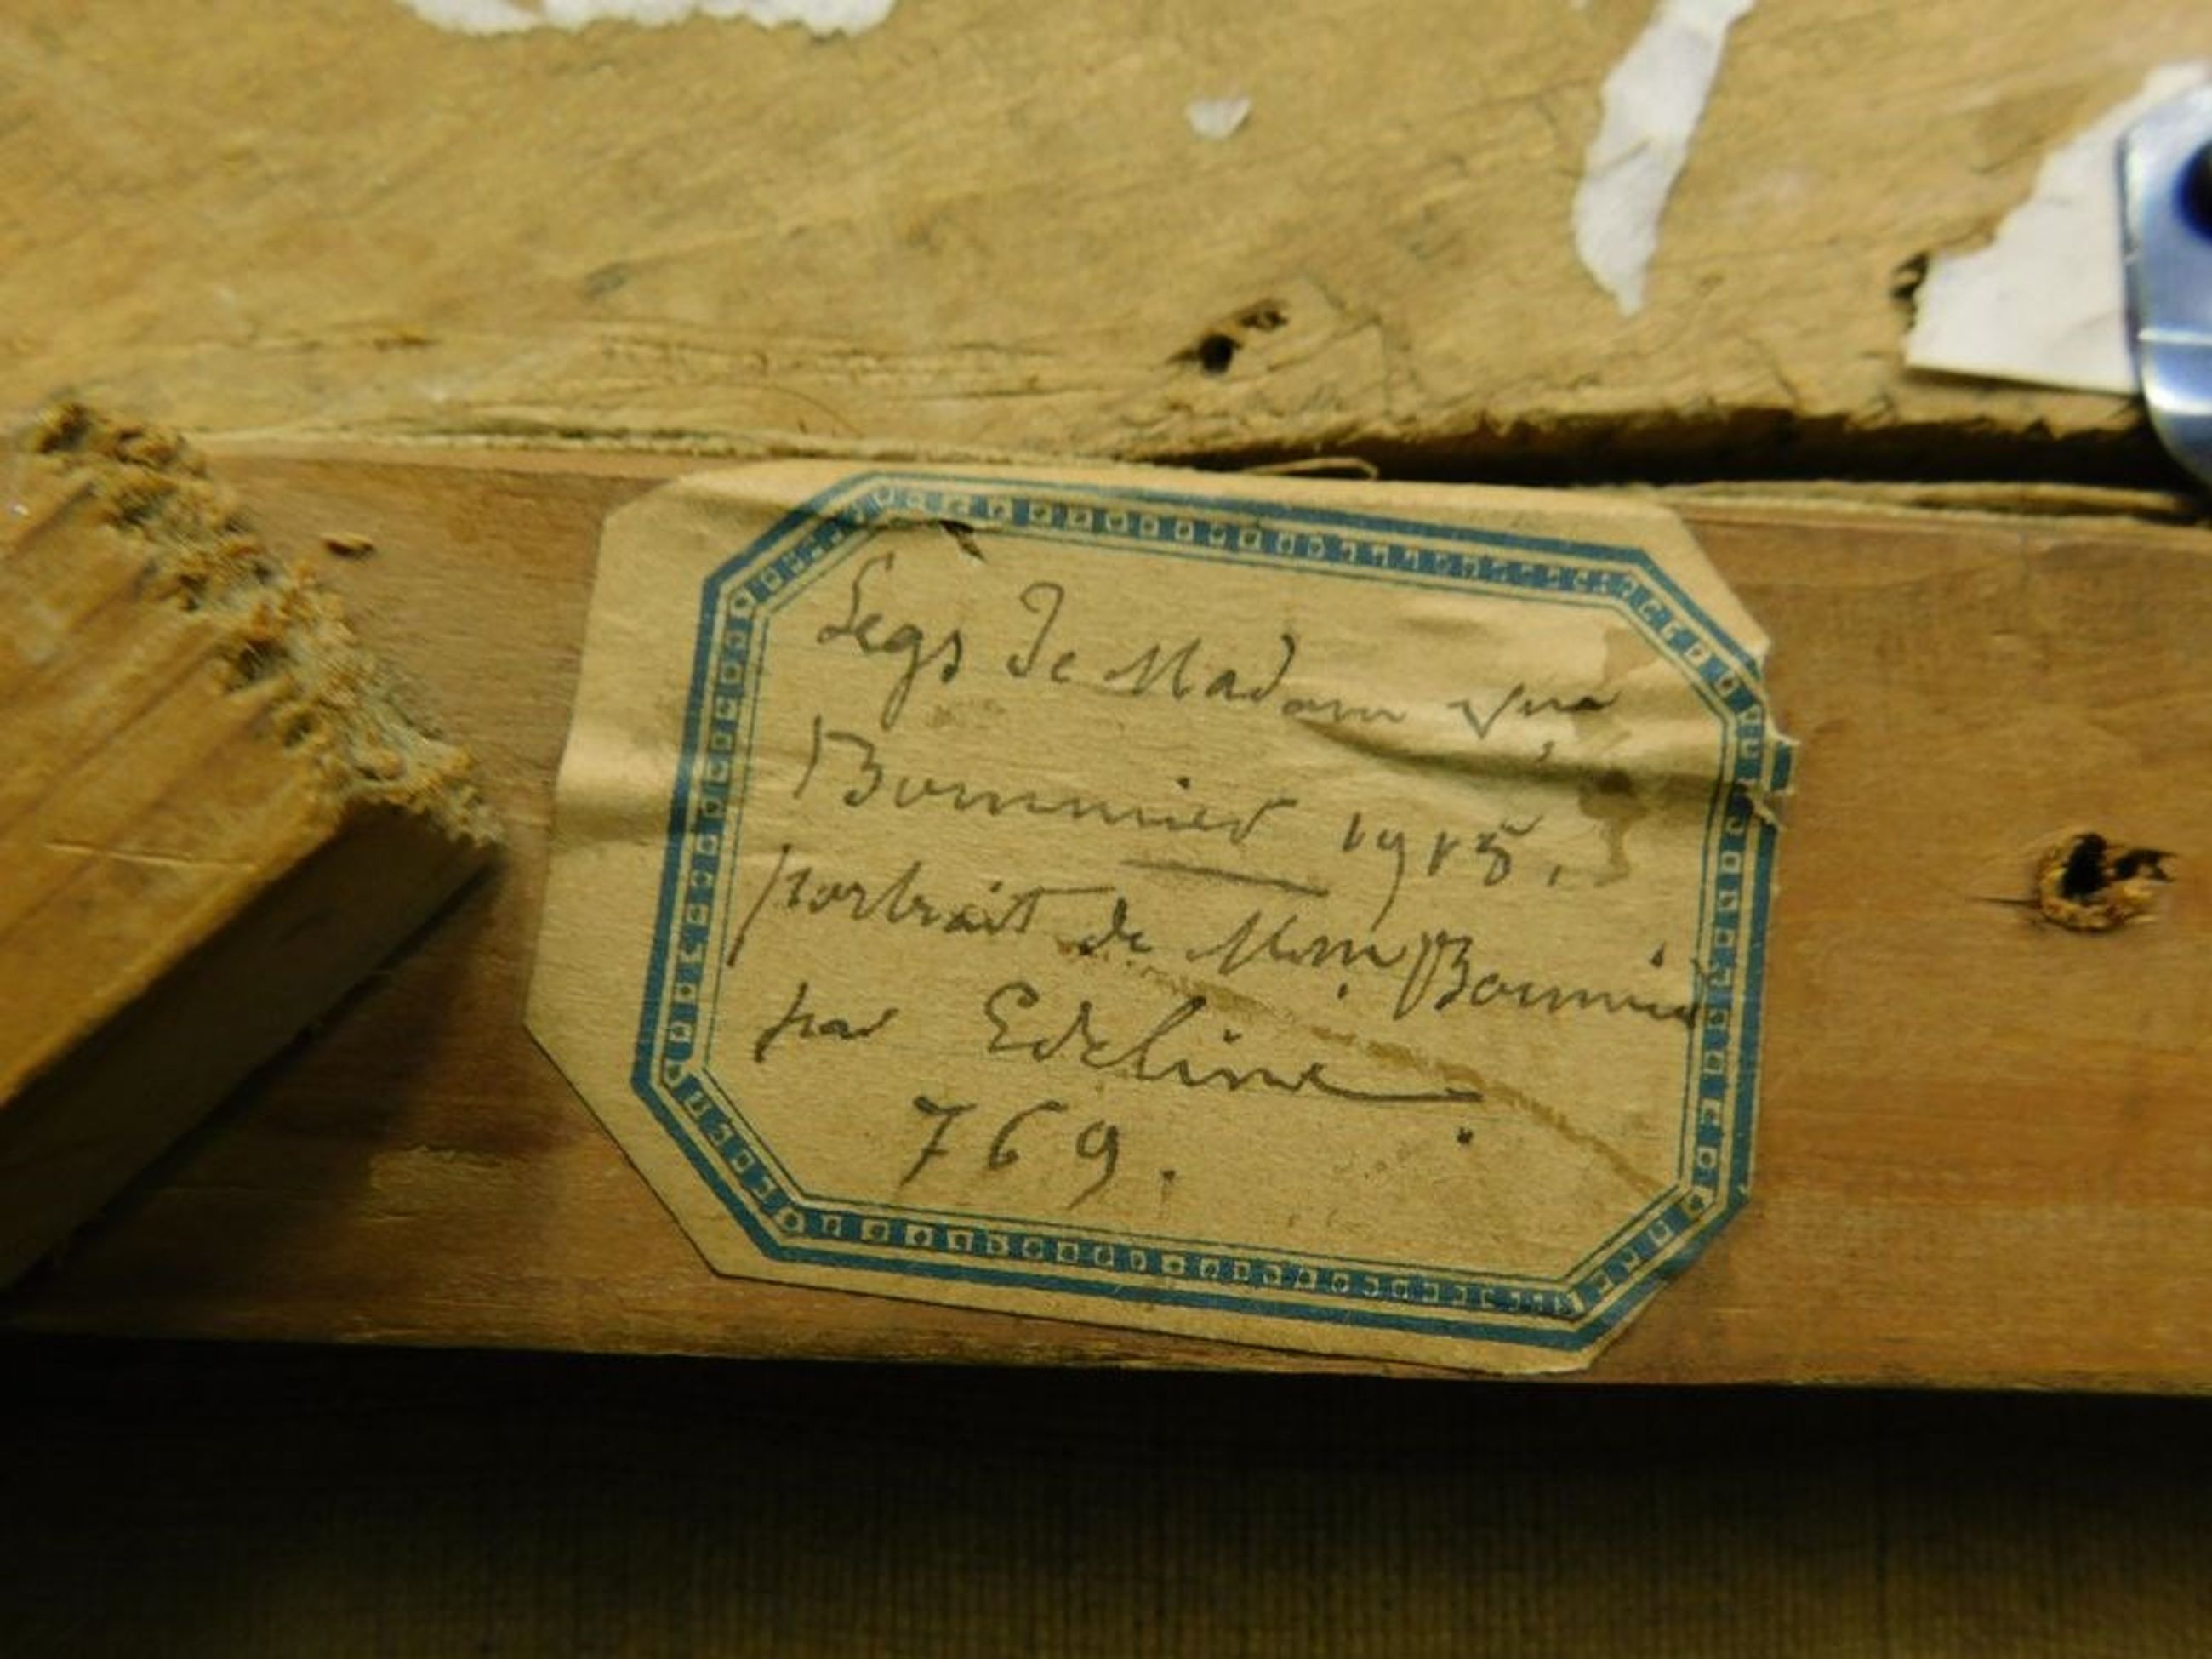 Legs de Madame Vve
Bommier 1915.
portrait de Mme Bommier
par Edeline
769.